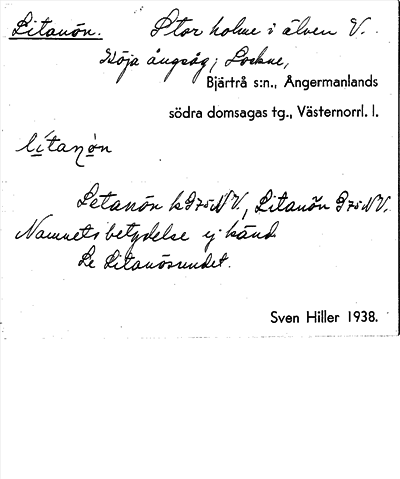 Litanön. Stor holme i älven V.
Höja ångsåg, Lockne,
Bjärtrå s:n., Ångermanlands
södra domsagas tg., Västernorrl. l.
Letanön k G75NV., Litanön G75NV.
Namnets betydelse ej känd.
Se Litanösundet.
Sven Hiller 1938.